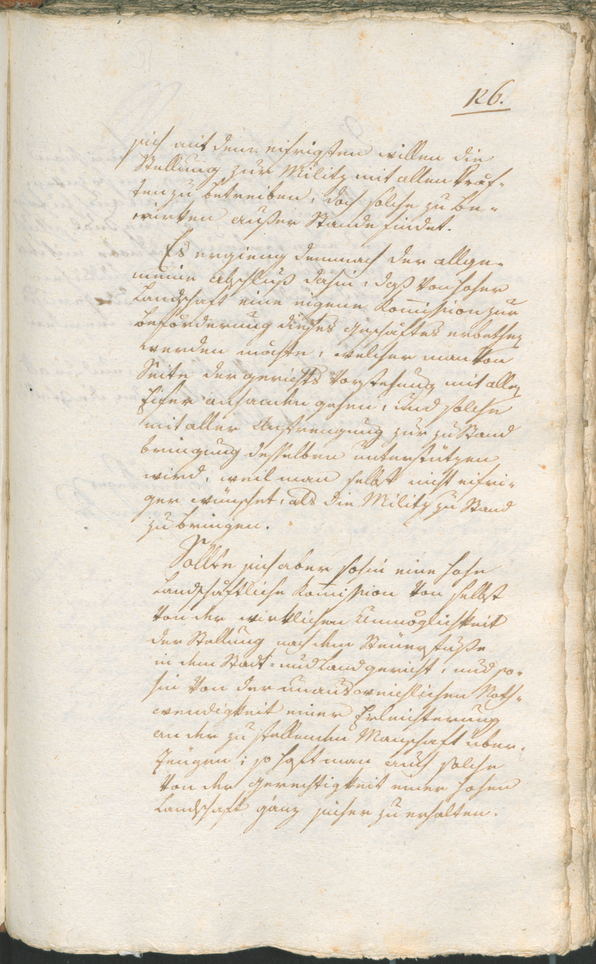 126.
sich mit dem eifrigsten willen die
Stellung zur Militz mit allen Kräf-
ten zu betreiben, doch solche zu be-
wirken außer Stande findet.
Es ergieng demnach der allge-
meine abschluß dahin, daß von hoher
Landschaft eine eigene Kom̅ission zur
beförderung dieses geschäftes erbethen
werden möchte, welcher man von
Seite der gerichts Vorstehung mit allen
Eifer an handen gehen, und solche
mit aller Anstrengung zur zu Stand
bringung desselben unterstützen
wird, weil man selbst nicht eifri-
ger wünschet, als die Militz zu Stand
zu bringen.
Sollte sich aber sohin eine hohe
Landschäftliche Kom̅ission von selbst
von der wirklichen Unmöglichkeit
der Stellung nach dem Steuerfuße
in dem Stadt- und Landgericht, und so-
hin von der unausweichlichen Noth-
wendigkeit einer Erleichterung
an der zu stellenden Manschaft über-
zeugen; so hoft man auch solche
von der gerechtigkeit einer hohen
Landschaft ganz sicher zu erhalten.